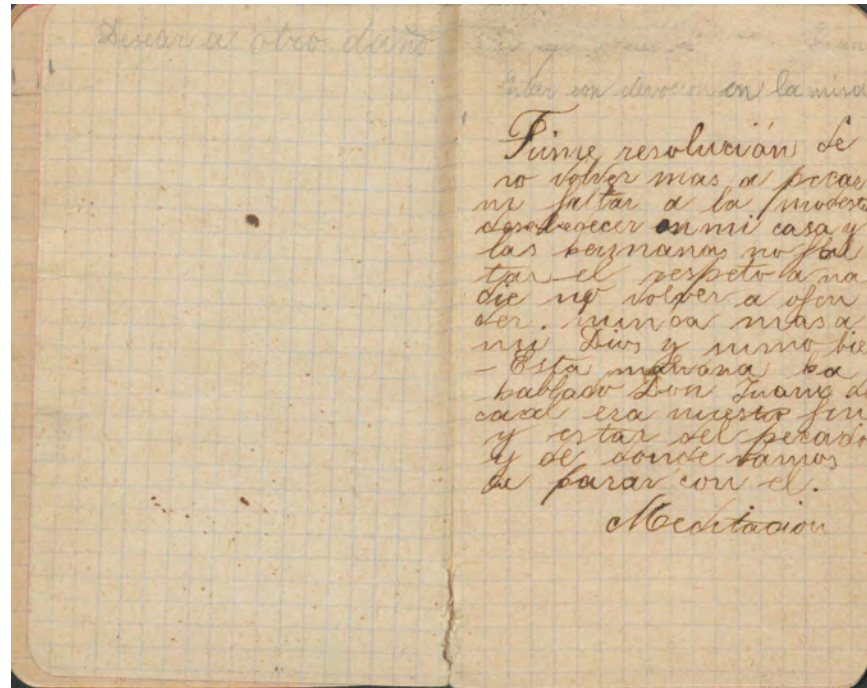 Desear a otro daño
Estar con devocion en la misa
Firme resolución de
no volver mas a pecar
ni faltar a la modest
desoberecer en mi casa y
las hermanas no fal
tar el respeto a na
die no volver a ofen
der. nunca mas a
mi Dios y sumo bie
- Esta mañana ha
hablado Don Juan de
cual era nuestro fin
y estar del pecado
y de donde vamos
de parar con el.
Meditacion